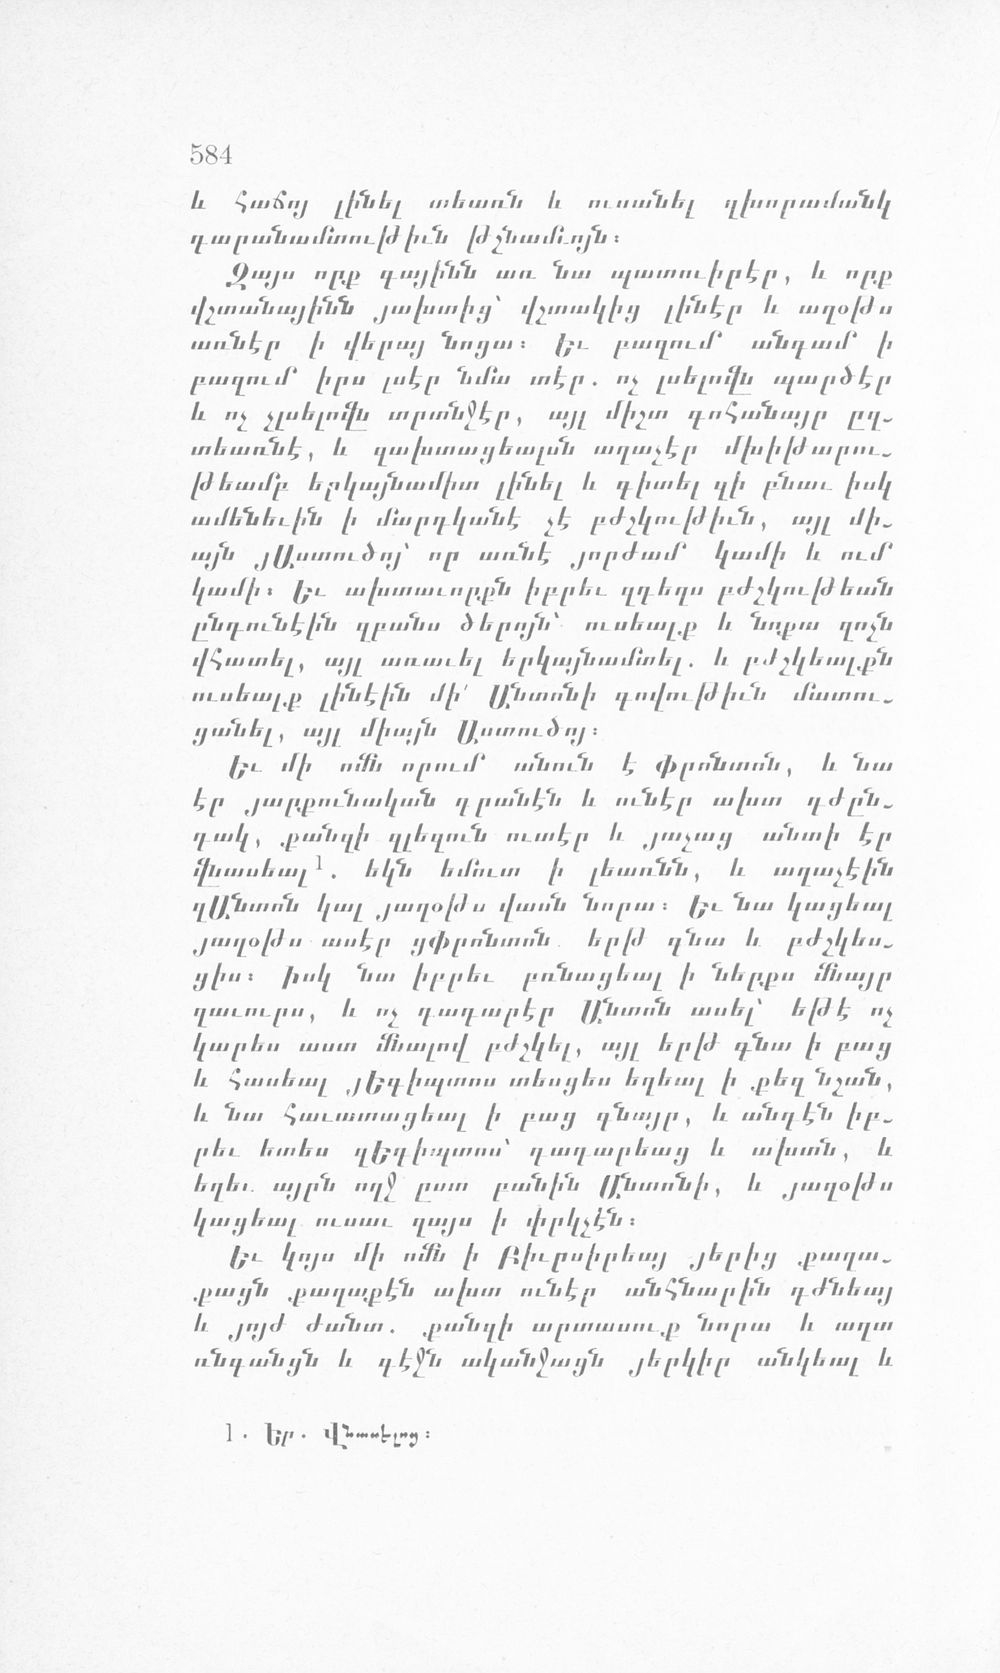 584
և հաճոյ լինել տեառն և ուսանել զխորամանկ
դարանամտութիւն թշնամւոյն։
Զայս որք գայինն առ նա պատուիրէր, և որք
վշտանայինն յախտից՝ վշտակից լինէր և աղօթս
առնէր ի վերայ նոցա։ Եւ բազում անգամ ի
բազում իրս լսէր նմա տէր. ոչ լսելովն պարծէր
և ոչ չլսելովն տրտնջէր, այլ միշտ գոհանայր ըզ-
տեառնէ, և զախտացեալսն աղաչէր մխիթարու-
թեամբ երկայնամիտ լինել և գիտել զի բնաւ իսկ
ամենեւին ի մարդկանէ չէ բժշկութիւն, այլ մի-
այն յԱստուծոյ՝ որ առնէ յորժամ կամի և ում
կամի։ Եւ ախտաւորքն իբրեւ զդեղս բժշկութեան
ընդունէին զբանս ծերոյն՝ ուսեալք և նոքա զոչն
վհատել, այլ առաւել երկայնամտել. և բժշկեալքն
ուսեալք լինէին մի՛ Անտոնի գովութիւն մատու-
ցանել, այլ միայն Աստուծոյ։
Եւ մի ոմն որում անուն է Փրոնտոն, և նա
էր յարքունական դրանէն և ունէր ախտ դժըն-
դակ, քանզի զլեզուն ուտէր և յաչաց անտի էր
վնասեալ1. եկն եմուտ ի լեառնն, և աղաչէին
զԱնտոն կալ յաղօթս վասն նորա։ Եւ նա կացեալ
յաղօթս ասէր ցՓրոնտոն երթ գնա և բժշկես-
ցիս։ Իսկ նա իբրեւ բռնացեալ ի ներքս մնայր
զաւուրս, և ոչ դադարէր Անտոն ասել՝ եթէ ոչ
կարես աստ մնալով բժշկել, այլ երթ գնա ի բաց
և հասեալ յԵգիպտոս տեսցես եղեալ ի քեզ նշան,
և նա հաւատացեալ ի բաց գնայր, և անդէն իբ-
րեւ ետես զԵգիպտոս՝ դադարեաց և ախտն, և
եղեւ այրն ողջ ըստ բանին Անտոնի, և յաղօթս
կացեալ ուսաւ զայս ի փրկչէն։
Եւ կոյս մի ոմն ի Բիւրսիրեայ յերից քաղա-
քացն քաղաքէն ախտ ունէր անհնարին դժնեայ
և յոյժ ժանտ. քանզի արտասուք նորա և աղտ
ռնգանցն և դէջն ականջացն յերկիր անկեալ և
1. Եր. Վնասելոց։